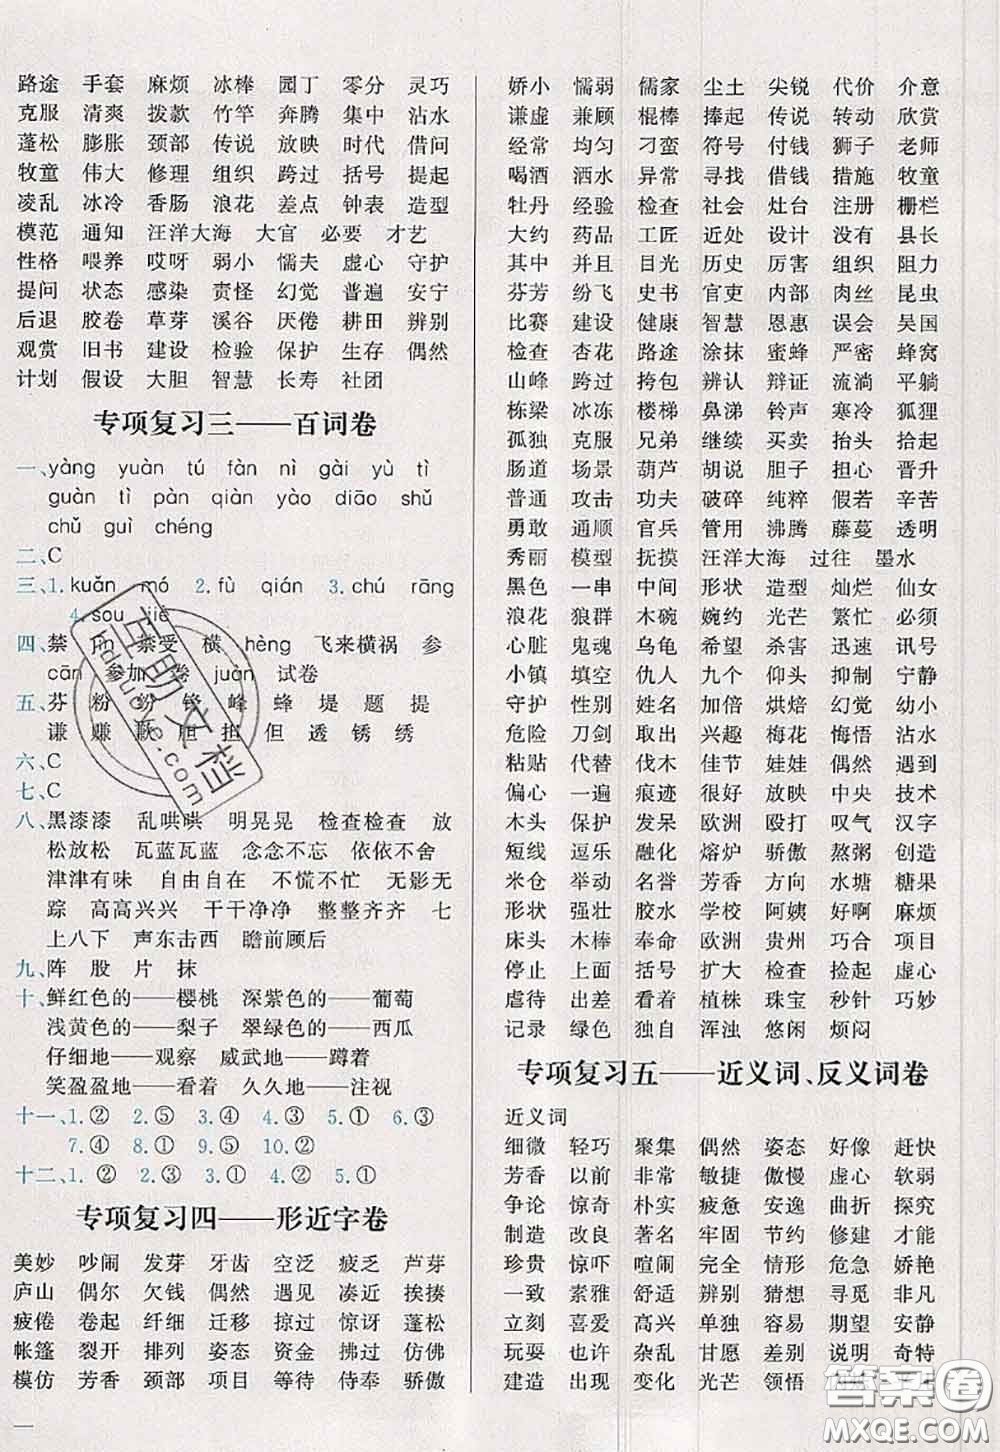 路途 手套 麻烦 冰棒 园丁 零分 灵巧
克服 清爽 拨款 竹竿 奔腾 集中 沾水
蓬松 膨胀 颈部 传说 放映 时代 借问
牧童 伟大 修理 组织 跨过 括号 提起
凌乱 冰冷 香肠 浪花 差点 钟表 造型
模范 通知 汪洋大海 大官 必要 才艺
性格 喂养 哎呀 弱小 懦夫 虚心 守护
提问 状态 感染 责怪 幻觉 普遍 安宁
后退 胶卷 草芽 溪谷 厌倦 耕田 辨别
观赏 旧书 建设 检验 保护 生存 偶然
计划 假设 大胆 智慧 长寿 社团
专项复习三——百词卷
一、yàng yuàn tú fàn nì gài yù tì
guàn tì pàn qiàn yào diāo shǔ
chǔ guì chéng
二、C
三、1.kuǎn mó 2.fù qián 3.chú rāng
4.sou jié
四、禁 禁受 横 hèng 飞来横祸 参
cān 参加 卷 juàn 试卷
五、芬 粉 纷 锋 峰 蜂 堤 题 提
谦 赚 歉 胆 担 但 透 锈 绣
六、C
七、C
八、黑漆漆 乱哄哄 明晃晃 检查检查 放
松放松 瓦蓝瓦蓝 念念不忘 依依不舍
津津有味 自由自在 不慌不忙 无影无
踪 高高兴兴 干干净净 整整齐齐 七
上八下 声东击西 瞻前顾后
九、阵 股 片 抹
十、鲜红色的——樱桃 深紫色的——葡萄
浅黄色的——梨子 翠绿色的——西瓜
仔细地——观察 威武地——蹲着
笑盈盈地——看着 久久地——注视
十一、1.② 2.⑤ 3.④ 4.③ 5.① 6.③
7.④ 8.① 9.⑤ 10.②
十二、1.② 2.③ 3.① 4.① 5.①
专项复习四——形近字卷
美妙 吵闹 发芽 牙齿 空泛 疲乏 芦芽
庐山 偶尔 欠钱 偶然 遇见 凑近 挨揍
疲倦 卷起 纤细 迁移 掠过 惊讶 蓬松
帐篷 裂开 排列 姿态 资金 拂过 仿佛
模仿 芳香 颈部 项目 等待 侍奉 骄傲
娇小 懦弱 儒家 尘土 尖锐 代价 介意
谦虚 兼顾 棍棒 捧起 传说 转动 欣赏
经常 均匀 刁蛮 符号 付钱 狮子 老师
喝酒 洒水 异常 寻找 借钱 措施 牧童
牡丹 经验 检查 社会 灶台 注册 栅栏
大约 药品 工匠 近处 设计 没有 县长
其中 并且 目光 历史 厉害 组织 阻力
芬芳 纷飞 史书 官吏 内部 肉丝 昆虫
比赛 建设 健康 智慧 恩惠 误会 吴国
检查 杏花 路途 涂抹 蜜蜂 严密 蜂窝
山峰 跨过 挎包 辨认 辩证 流淌 平躺
栋梁 冰冻 楼梯 鼻涕 铃声 寒冷 狐狸
孤独 克服 兄弟 继续 买卖 抬头 拾起
肠道 场景 葫芦 胡说 胆子 担心 晋升
普通 攻击 功夫 破碎 纯粹 假若 辛苦
勇敢 通顺 官兵 管用 沸腾 藤蔓 透明
秀丽 模型 抚摸 汪洋大海 过往 墨水
黑色 一串 中间 形状 造型 灿烂 仙女
浪花 狼群 木碗 婉约 光芒 繁忙 必须
心脏 鬼魂 乌龟 希望 杀害 迅速 讯号
小镇 填空 仇人 九个 仰头 抑制 宁静
守护 性别 姓名 加倍 烘焙 幻觉 幼小
危险 刀剑 取出 兴趣 梅花 悔悟 沾水
粘贴 代替 伐木 佳节 娃娃 偶然 遇到
偏心 一遍 痕迹 很好 放映 中央 技术
木头 保护 发呆 欧洲 殴打 叹气 汉字
短线 逗乐 融化 熔炉 骄傲 熬粥 创造
米仓 举动 名誉 芳香 方向 水塘 糖果
形状 强壮 胶水 学校 阿姨 好啊 麻烦
床头 木棒 奉命 欧洲 贵州 巧合 项目
停止 上面 括号 扩大 检查 捡起 虚心
虐待 出差 看着 植株 珠宝 秒针 巧妙
记录 绿色 独自 浑浊 悠闲 烦闷
专项复习五——近义词、反义词卷
近义词
细微 轻巧 聚集 偶然 姿态 好像 赶快
芳香 以前 非常 敏捷 傲慢 虚心 软弱
争论 惊奇 朴实 疲惫 安逸 曲折 探究
制造 改良 著名 牢固 节约 修建 才能
珍贵 惊吓 喧闹 完全 情形 危急 娇艳
一致 素雅 舒适 辨别 猜想 寻觅 非凡
立刻 喜爱 高兴 单独 容易 期望 安静
玩耍 也许 杂乱 甘愿 差别 说明 奇特
建造 出现 变化 光芒 领悟
直助文档
答案卷
MXQE.COM